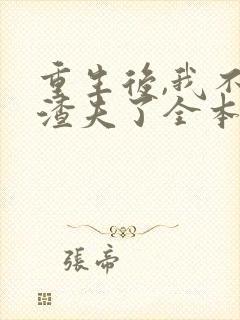 重生後,我不
渣夫了全本
張帝